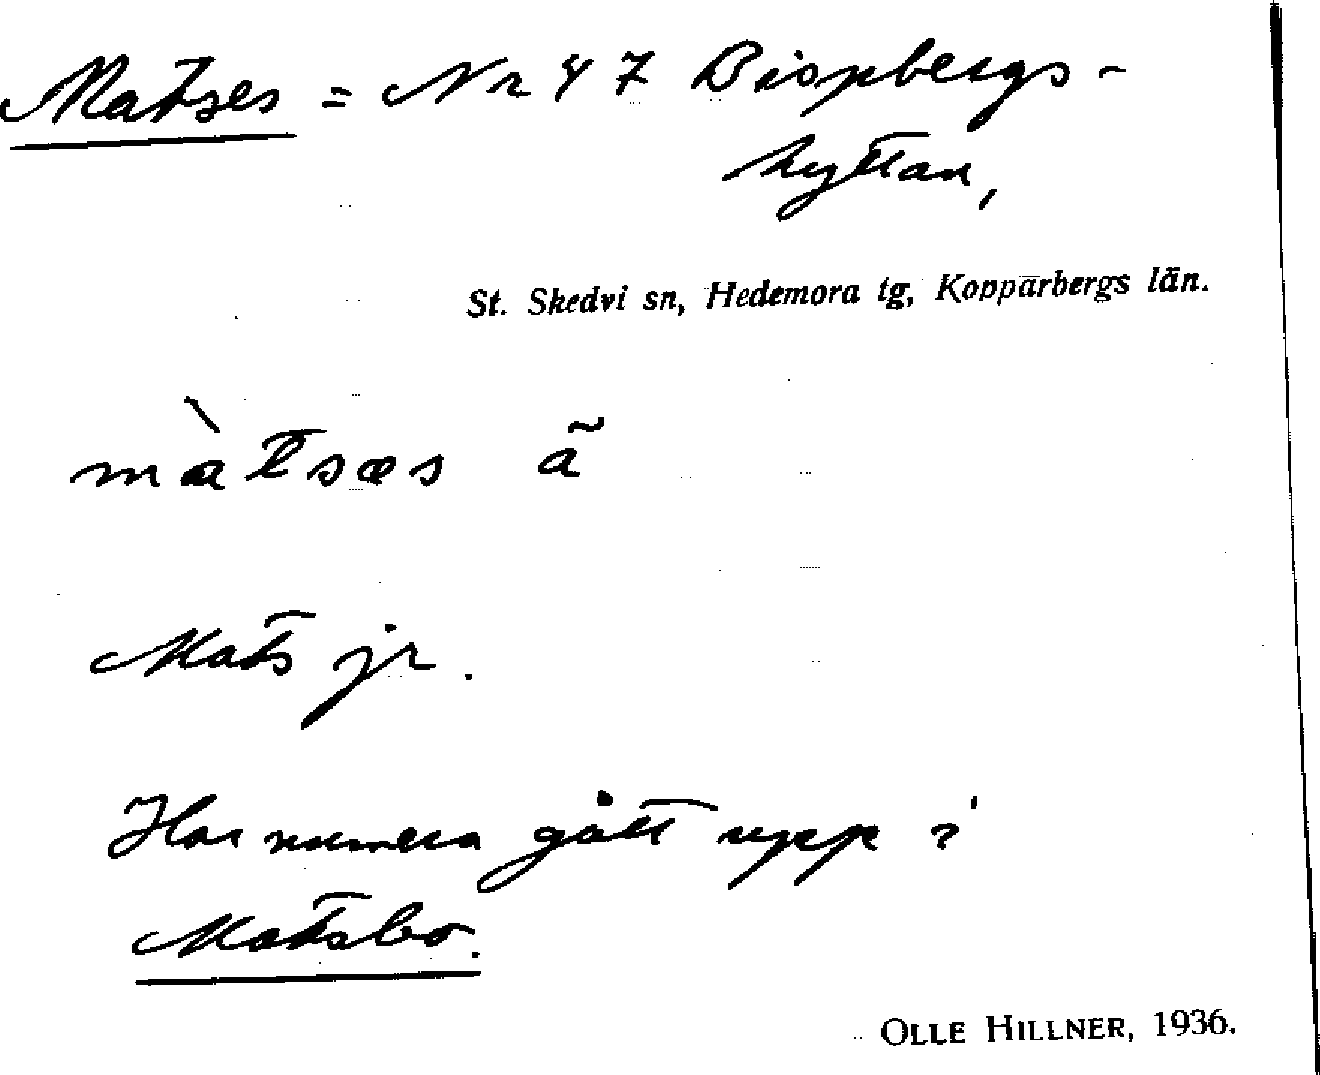 Matses = Nr 47 Bispbergs-
hyttan,
St. Skedvi sn, Hedemora tg, Kopparbergs län.
màtsæs ã
Mats jr.
Har numera gått upp i
Matsbo.
OLLE HILLNER, 1936.